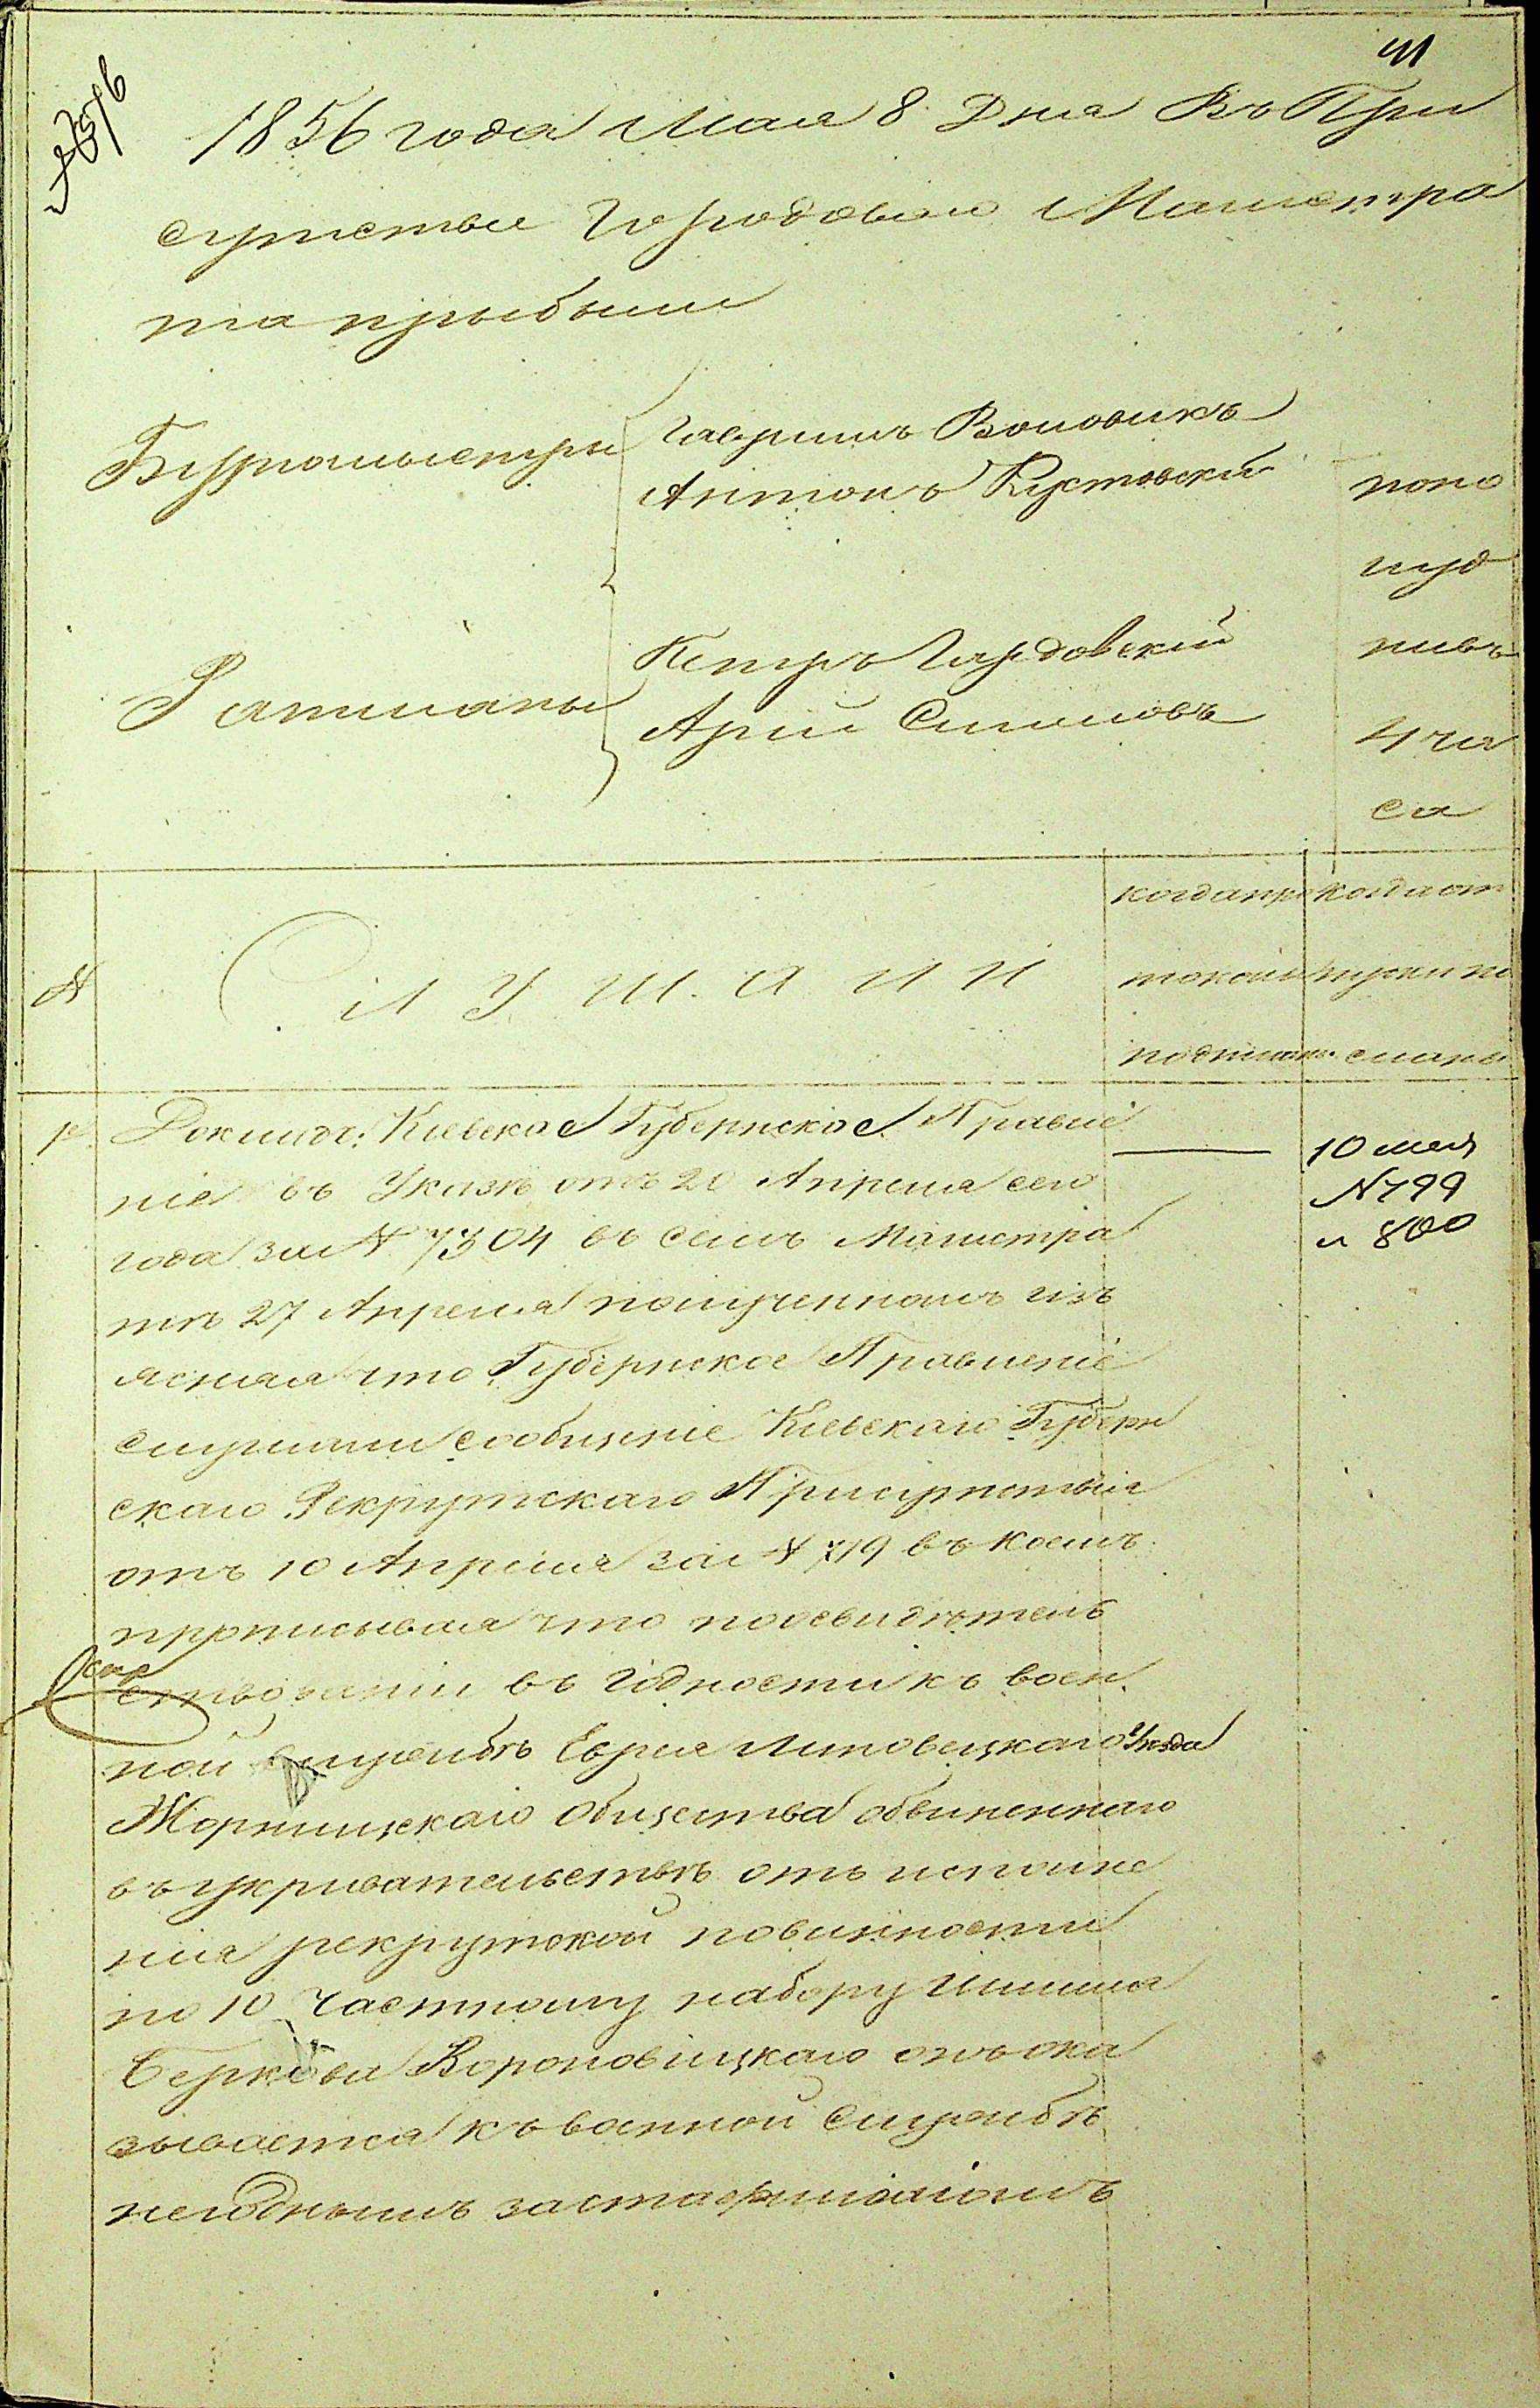 41
№ 376
1856 года Мая 8 Дня Въ При
сутствіе Городоваго Магистра
та прибыли
Бургомистры
Гаврило Воловикъ
Антонъ Кустовскій
Ратманы
Петръ Гардовскій
Арій Симховъ
попо
луд
нивъ
4 ча
са
№
Слушали
когда про
токолъ
подписанъ
когда от
пуски по
сланы
1е
Докладъ: Кіевское Губернское Правле
ніе въ Указѣ отъ 20 Апреля сего
года за № 7304 въ семъ Магистра
тѣ 27 Апреля полученномъ изъ
ясняя что Губернское Правленіе
слушали сообщеніе Кіевскаго Губерн
скаго Рекрутскаго Присутствія
отъ 10 Апреля за № 719 въ коемъ
прописывая что поосвидѣтель
ствованіи въ годности къ воен
ной службѣ Еврея Липовецкаго Уѣзда
Жорнищскаго Общества обвиненнаго
въ укривательствѣ отъ исполне
нія рекрутской повинности
по 10 Частному набору
Беркова Вороновицкаго онъ ока
зывается къ военной службѣ
негоднымъ
10 мая
№ 799
и 800